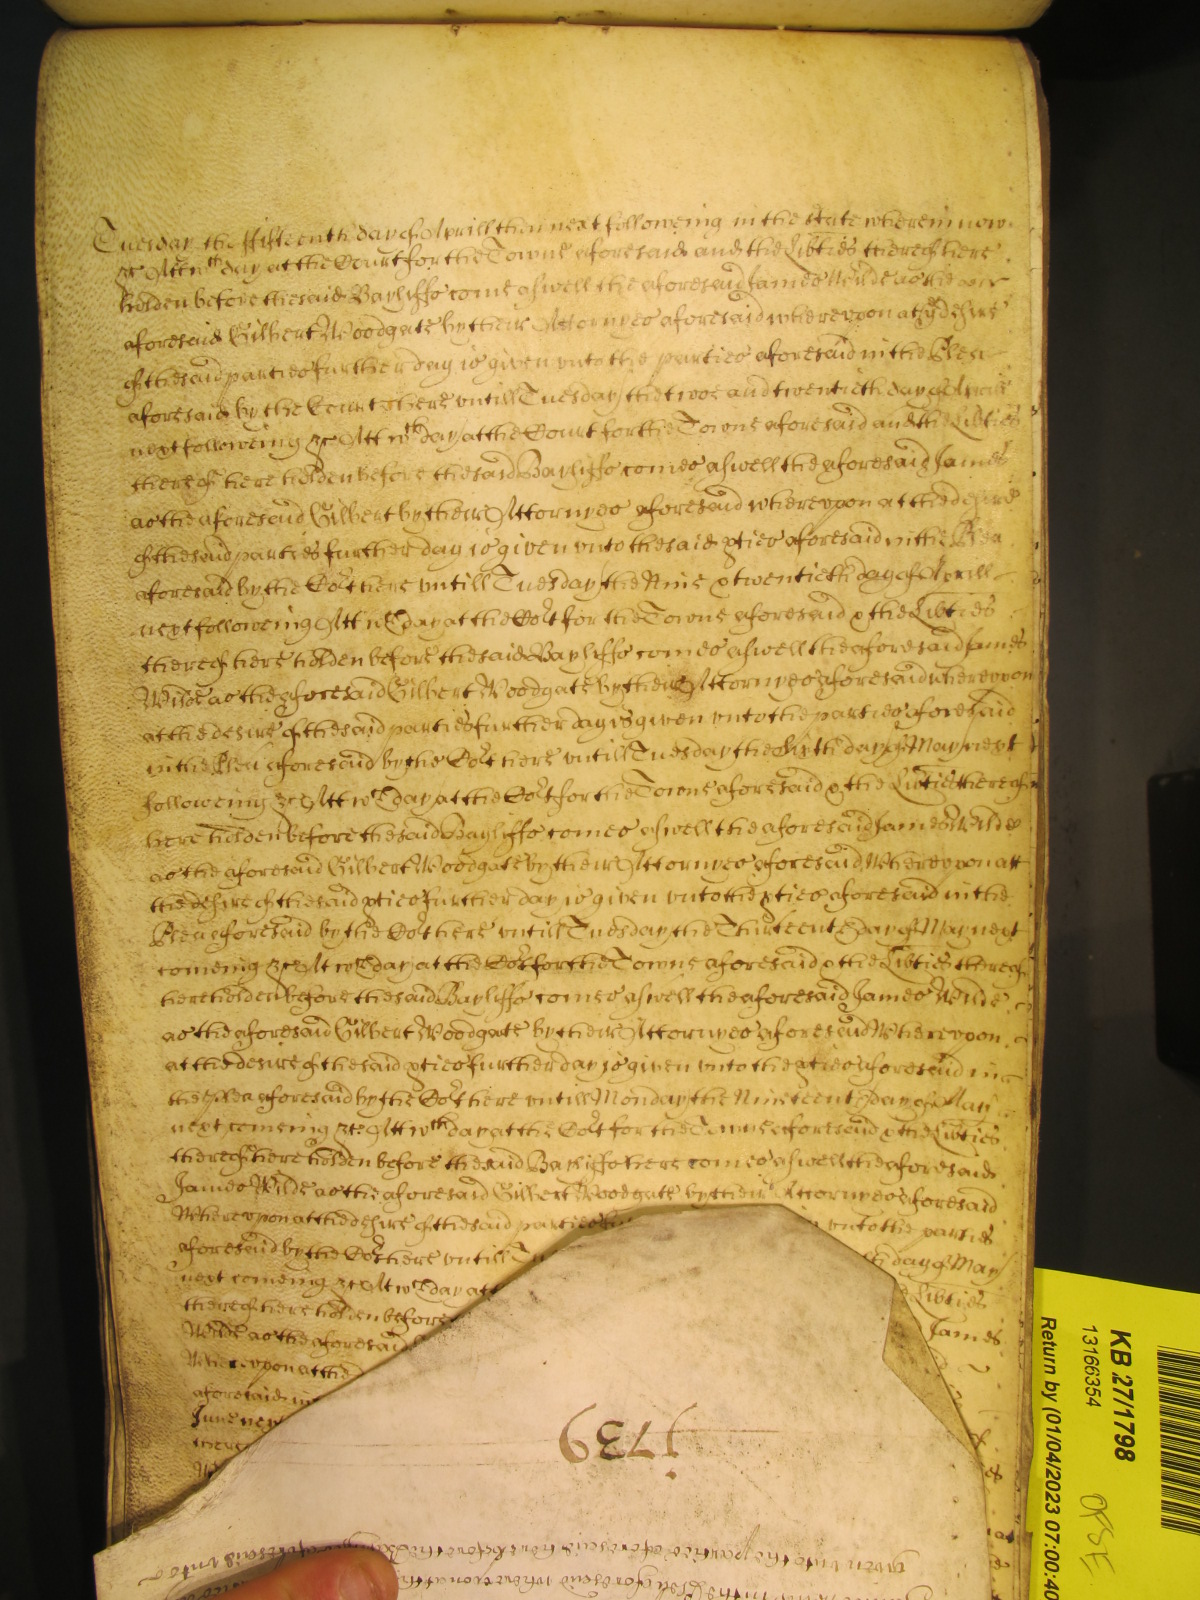 Tuesday the ffifteenth day of Aprill then next followeing in the state wherein now
&c Att wch day at the Court for the Towne aforesaid and the Libties thereof here
holden before the said Bayliffs come aswell the aforesaid James Wilde as the
aforesaid Gilbert Woodgate by theire Attornyes aforesaid whereupon at the desire
of the said parties further day is given unto the parties aforesaid in the Plea
aforesaid by the Court here untill Tuesday the twoe and twentieth day of Aprill
next followeing &c Att wch day at the Court for the Towne aforesaid and the Libties
thereof here holden before the said Bayliffs comes aswell the aforesaid James
as the aforesaid Gilbert by theire Attornyes aforesaid whereupon at the desire
of the said parties further day is given unto the said pties aforesaid in the Plea
aforesaid by the Cort here untill Tuesday the Nine & twentieth day of Aprill
next followeing Att wch day at the Cort for the Towne aforesaid & the Libties
thereof here holden before the said Bayliffs comes aswell the aforesaid James
Wilde as the aforesaid Gilbert Woodgate by theire Attornyes aforesaid whereupon
at the desire of the said parties further day is given unto the parties aforesaid
in the Plea aforesaid by the Cort here untill Tuesday the Sixth day of May next
followeing &c Att wch day at the Cort for the Towne aforesaid & the Libties thereof
here holden before the said Bayliffs comes aswell the aforesaid James Wilde
as the aforesaid Gilbert Woodgate by theire Attornyes aforesaid Whereupon att
the desire of the said pties further day is given unto the pties aforesaid in the
Plea aforesaid by the Cort here untill Tuesday the Thirteenth day of May next
comeing &c At wch day at the Cort for the Towne aforesaid & the Libties thereof
here holden before the said Bayliffs comes aswell the aforesaid James Wilde
as the aforesaid Gilbert Woodgate by theire Attornyes aforesaid Whereupon
at the desire of the said pties further day is given unto the pties aforesaid in
the Plea aforesaid by the Cort here untill Monday the Nineteenth day of May
next comeing &c Att wch day at the Cort for the Towne aforesaid & the Libties
thereof here holden before the said Bayliffs here comes aswell the aforesaid
James Wilde as the aforesaid Gilbert Woodgate by theire Attornyes aforesaid
Whereupon at the desire of the said parties unto the parties
aforesaid by the Cort here untill day of May
next comeing &c At wch day at Libties
thereof here holden before James
Wilde as the aforesaid
Whereupon at the
aforesaid in
June next
1739
KB 27/1798
13166354
Return by (01/04/2023 07:00:40